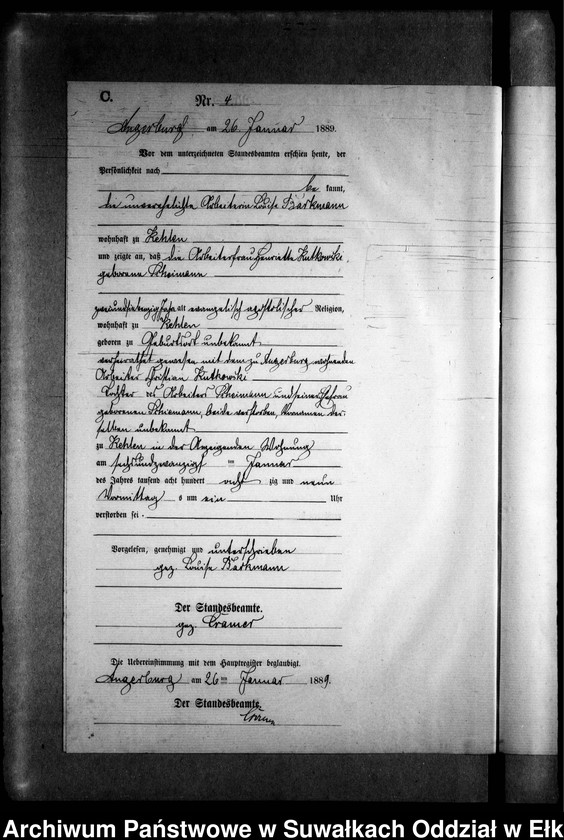 C.
Nr. 4
Angerburg am 26. Januar 1889.
Vor dem unterzeichneten Standesbeamten erschien heute, der
Persönlichkeit nach
be kannt,
die unverehelichte Arbeiterin Louise Barkmann
wohnhaft zu Kehlen
und zeigte an, daß die Arbeiterfrau Henriette Kutkowski,
geborene Scheimann
zweiundsiebenzig Jahr alt evangelisch apostolischer Religion,
wohnhaft zu Kehlen
geboren zu Geburtsort unbekannt
verheirathet gewesen mit dem zu Angerburg wohnenden
Arbeiter Christian Kutkowski
Tochter des Arbeiters Scheimann und seiner Ehefrau
geborenen Schiemann, beide verstorben, Vornamen der-
selben unbekannt
zu Kehlen in der Anzeigenden Wohnung
am sechsundzwanzigsten Januar
des Jahres tausend acht hundert acht zig und neun
Vormittag s um ein Uhr
verstorben sei.
Vorgelesen, genehmigt und unterschrieben
gez. Louise Barkmann
Der Standesbeamte.
gez. Cramer
Die Uebereinstimmung mit dem Hauptregister beglaubigt.
Angerburg am 26ten Januar 1889.
Der Standesbeamte.
Cramer
Archiwum Państwowe w Suwałkach Oddział w Ełk